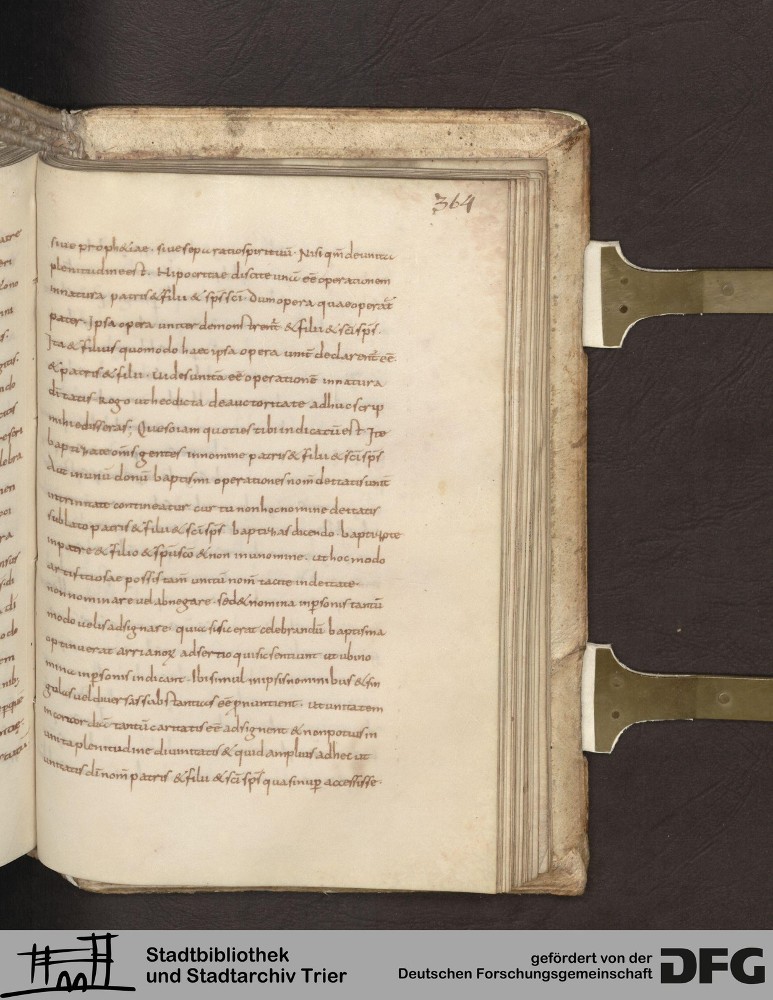 364
siue prophetiae · siue sopu ratiospirituū · Nisi qm̄ deunita
plenitudine est · Hipocritae discite unū eē operationem
innatura patris & filii & sp̄s sc̄i · Dum opera quae operat̄
pater · Ipsa opera uniter demonstrent̄ & filii & sc̄i sp̄s ·
Ita & filius quomodo haec ipsa opera unit̄ declarent̄ eē
& patris & filii · uides unitā eē operationē innatura
di tatis · Rogo ut haec dicta deauctoritate adhuc scrip
mihi ediseras; Quesoiam quoties tibi indicatū est Ite
baptizate oms̄ gentes innomine patris & filii & sc̄i sp̄s
Aut inunū donū baptismi operationes nom̄ deitatis unit̄
intrinitate contineatur cur tu non hoc nomine deitatis
sublato patris & filii & sc̄i sp̄s baptizas dicendo · baptizo te
inpatre & filio & sp̄u sc̄o & non in unomine · ut hoc modo
artificiosae possis tam̄ unitū nom̄ tacite indeitate
non nominare uel abnegare · sed & nomina inpsonis tantū
modo uelis adsignare · quia si sic erat celebrandū baptisma
optinuerat arrianoꝝ adsertio qui sic sentiunt ut ubi no
mina inpsonis indicant · Ibi simul in ipsis nominibus & sin
gulas uel diuersas substantias eē pnuntient · ut unitatem
in concordia tantū caritatis eē adsignent & non potius in
unita plenitudine diuinitatis & quid amplius adhec ut
unitatis di nom̄ patris & filii & sc̄i sp̄s quasi nup̄ accessisse ·
Stadtbibliothek
und Stadtarchiv Trier
gefördert von der
Deutschen Forschungsgemeinschaft
DFG